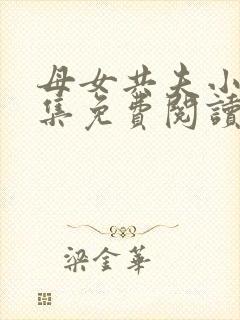 母女共夫小
集免費閱讀
梁金華